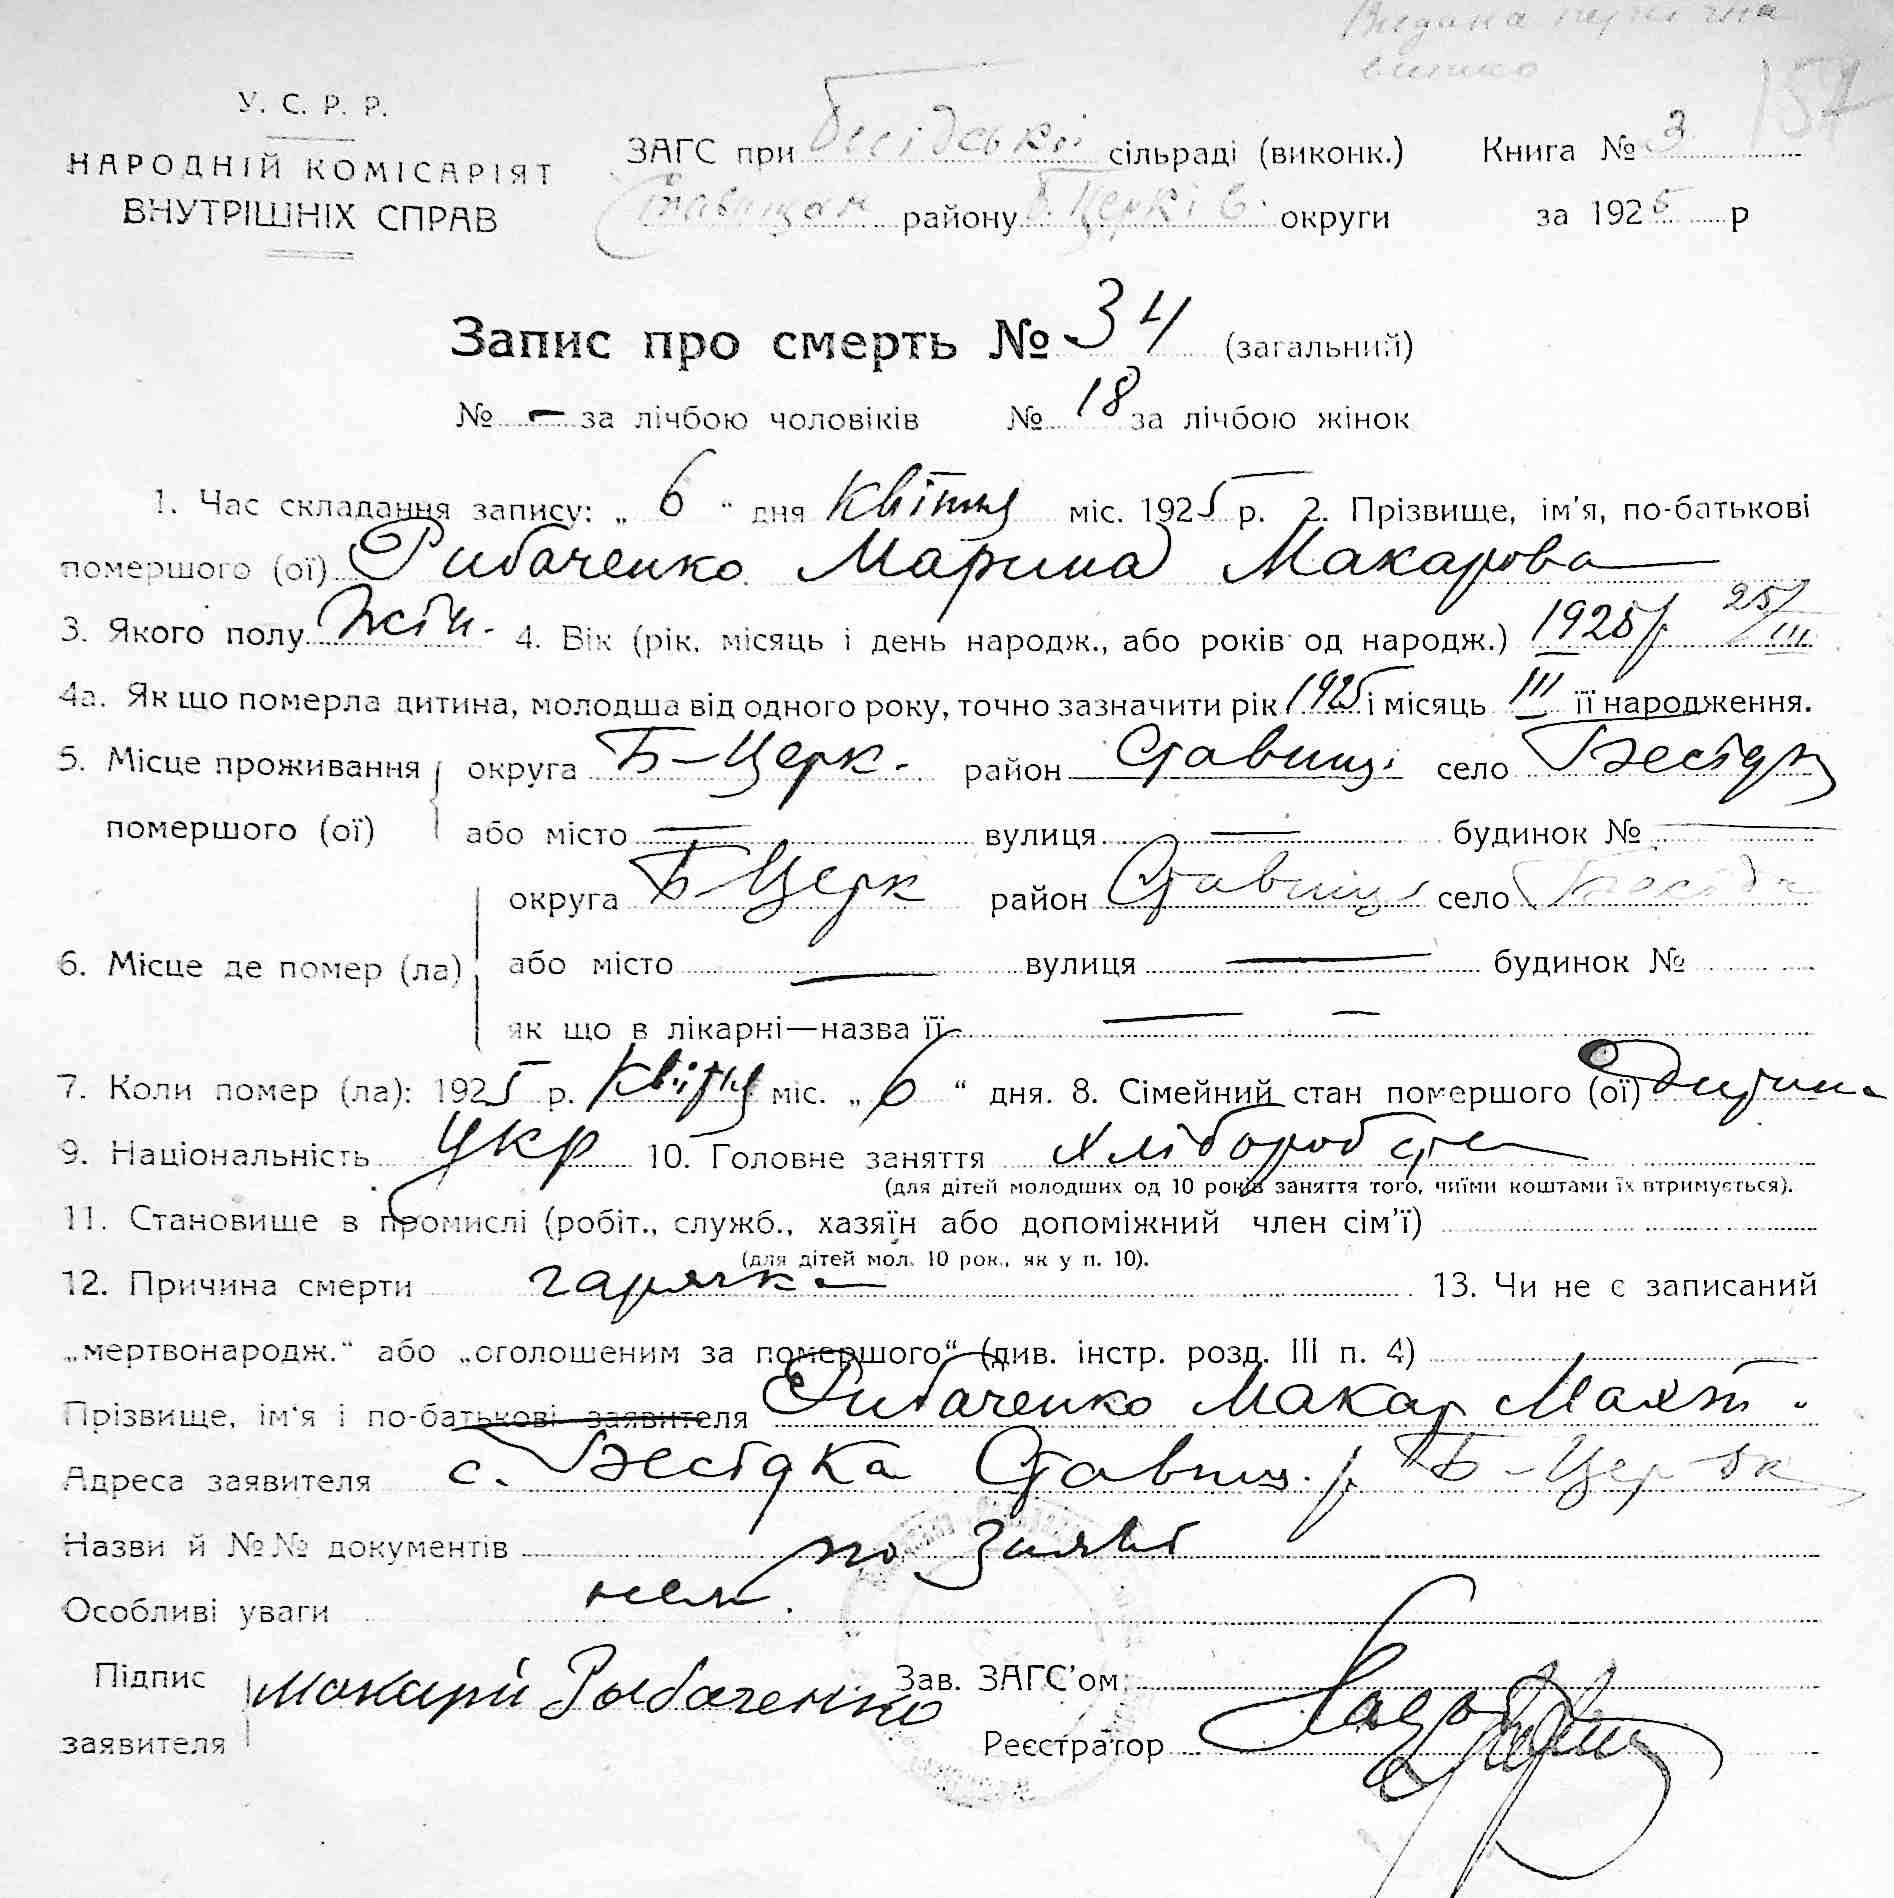 Видана
У. С. Р. Р.
НАРОДНІЙ КОМІСАРІЯТ
ВНУТРІШНІХ СПРАВ
ЗАГС при Бесідській сільраді (виконк.) Книга № 3 157
Ставищан району Б Церків. округи за 1925 р
Запис про смерть № 34 (загальний)
№ — за лічбою чоловіків № 18 за лічбою жінок
1. Час складання запису: „ 6 “ дня квітня міс. 1925 р. 2. Прізвище, ім'я, по-батькові
помершого (ої) Рибаченко Марина Макарова
3. Якого полу жін. 4. Вік (рік, місяць і день народж., або років од народж.) 1925 р. 25/III
4а. Як що померла дитина, молодша від одного року, точно зазначити рік 1925 і місяць III її народження.
5. Місце проживання помершого (ої) округа Б-Церк. район Ставищ. село Бесідка
або місто — вулиця — будинок № —
6. Місце де помер (ла) округа Б-Церк район Ставищ село Бесідк
або місто — вулиця — будинок №
як що в лікарні—назва її — —
7. Коли помер (ла): 1925 р. Квітня міс. „ 6 “ дня. 8. Сімейний стан помершого (ої) дитина
9. Національність Укр 10. Головне заняття Хліборобство
(для дітей молодших од 10 років заняття того, чиїми коштами їх втримується).
11. Становище в промислі (робіт., служб., хазяїн або допоміжний член сім'ї)
(для дітей мол. 10 рок., як у п. 10).
12. Причина смерти гарячка 13. Чи не є записаний
„мертвонародж.“ або „оголошеним за помершого“ (див. інстр. розд. III п. 4)
Прізвище, ім'я і по-батькові заявителя Рибаченко Макар
Адреса заявителя с. Бесідка Ставищ. р. Б-Церок
Назви й №№ документів по заяві
Особливі уваги нема.
Підпис заявителя Макарий Рыбаченко
Зав. ЗАГС'ом:
Реєстратор